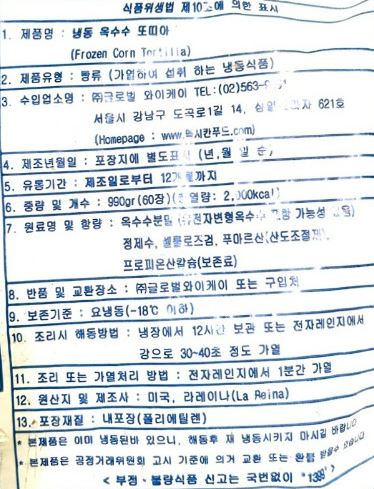 식품위생법 제10조에 의한 표시
1. 제품명 : 냉동 옥수수 또띠아
(Frozen Corn Tortilla)
2. 제품유형 : 빵류 (가열하여 섭취 하는 냉동식품)
3. 수입업소명 : ㈜글로벌 와이케이 TEL:(02)563-
서울시 강남구 도곡로1길 14, 621호
(Homepage : www.멕시칸푸드.com)
4. 제조년월일 : 포장지에 별도표시 (년,월,일 순)
5. 유통기간 : 제조일로부터 12개월까지
6. 중량 및 개수 : 990gr(60장)(총 열량: kcal)
7. 원료명 및 함량 : 옥수수분말 (유전자변형옥수수 포함 가능성 있음)
정제수, 셀룰로즈검, 푸마르산(산도조절제),
프로피온산칼슘(보존료)
8. 반품 및 교환장소 : ㈜글로벌와이케이 또는 구입처
9. 보존기준 : 요냉동(-18℃ 이하)
10. 조리시 해동방법 : 냉장에서 12시간 보관 또는 전자레인지에서
강으로 30-40초 정도 가열
11. 조리 또는 가열처리 방법 : 전자레인지에서 1분간 가열
12. 원산지 및 제조사 : 미국, 라레이나(La Reina)
13. 포장재질 : 내포장(폴리에틸렌)
* 본제품은 이미 냉동된바 있으니, 해동후 재 냉동시키지 마시길 바랍니다
* 본제품은 공정거래위원회 고시 기준에 의거 교환 또는 환불 받을수 있습니다
< 부정·불량식품 신고는 국번없이 "1399" >